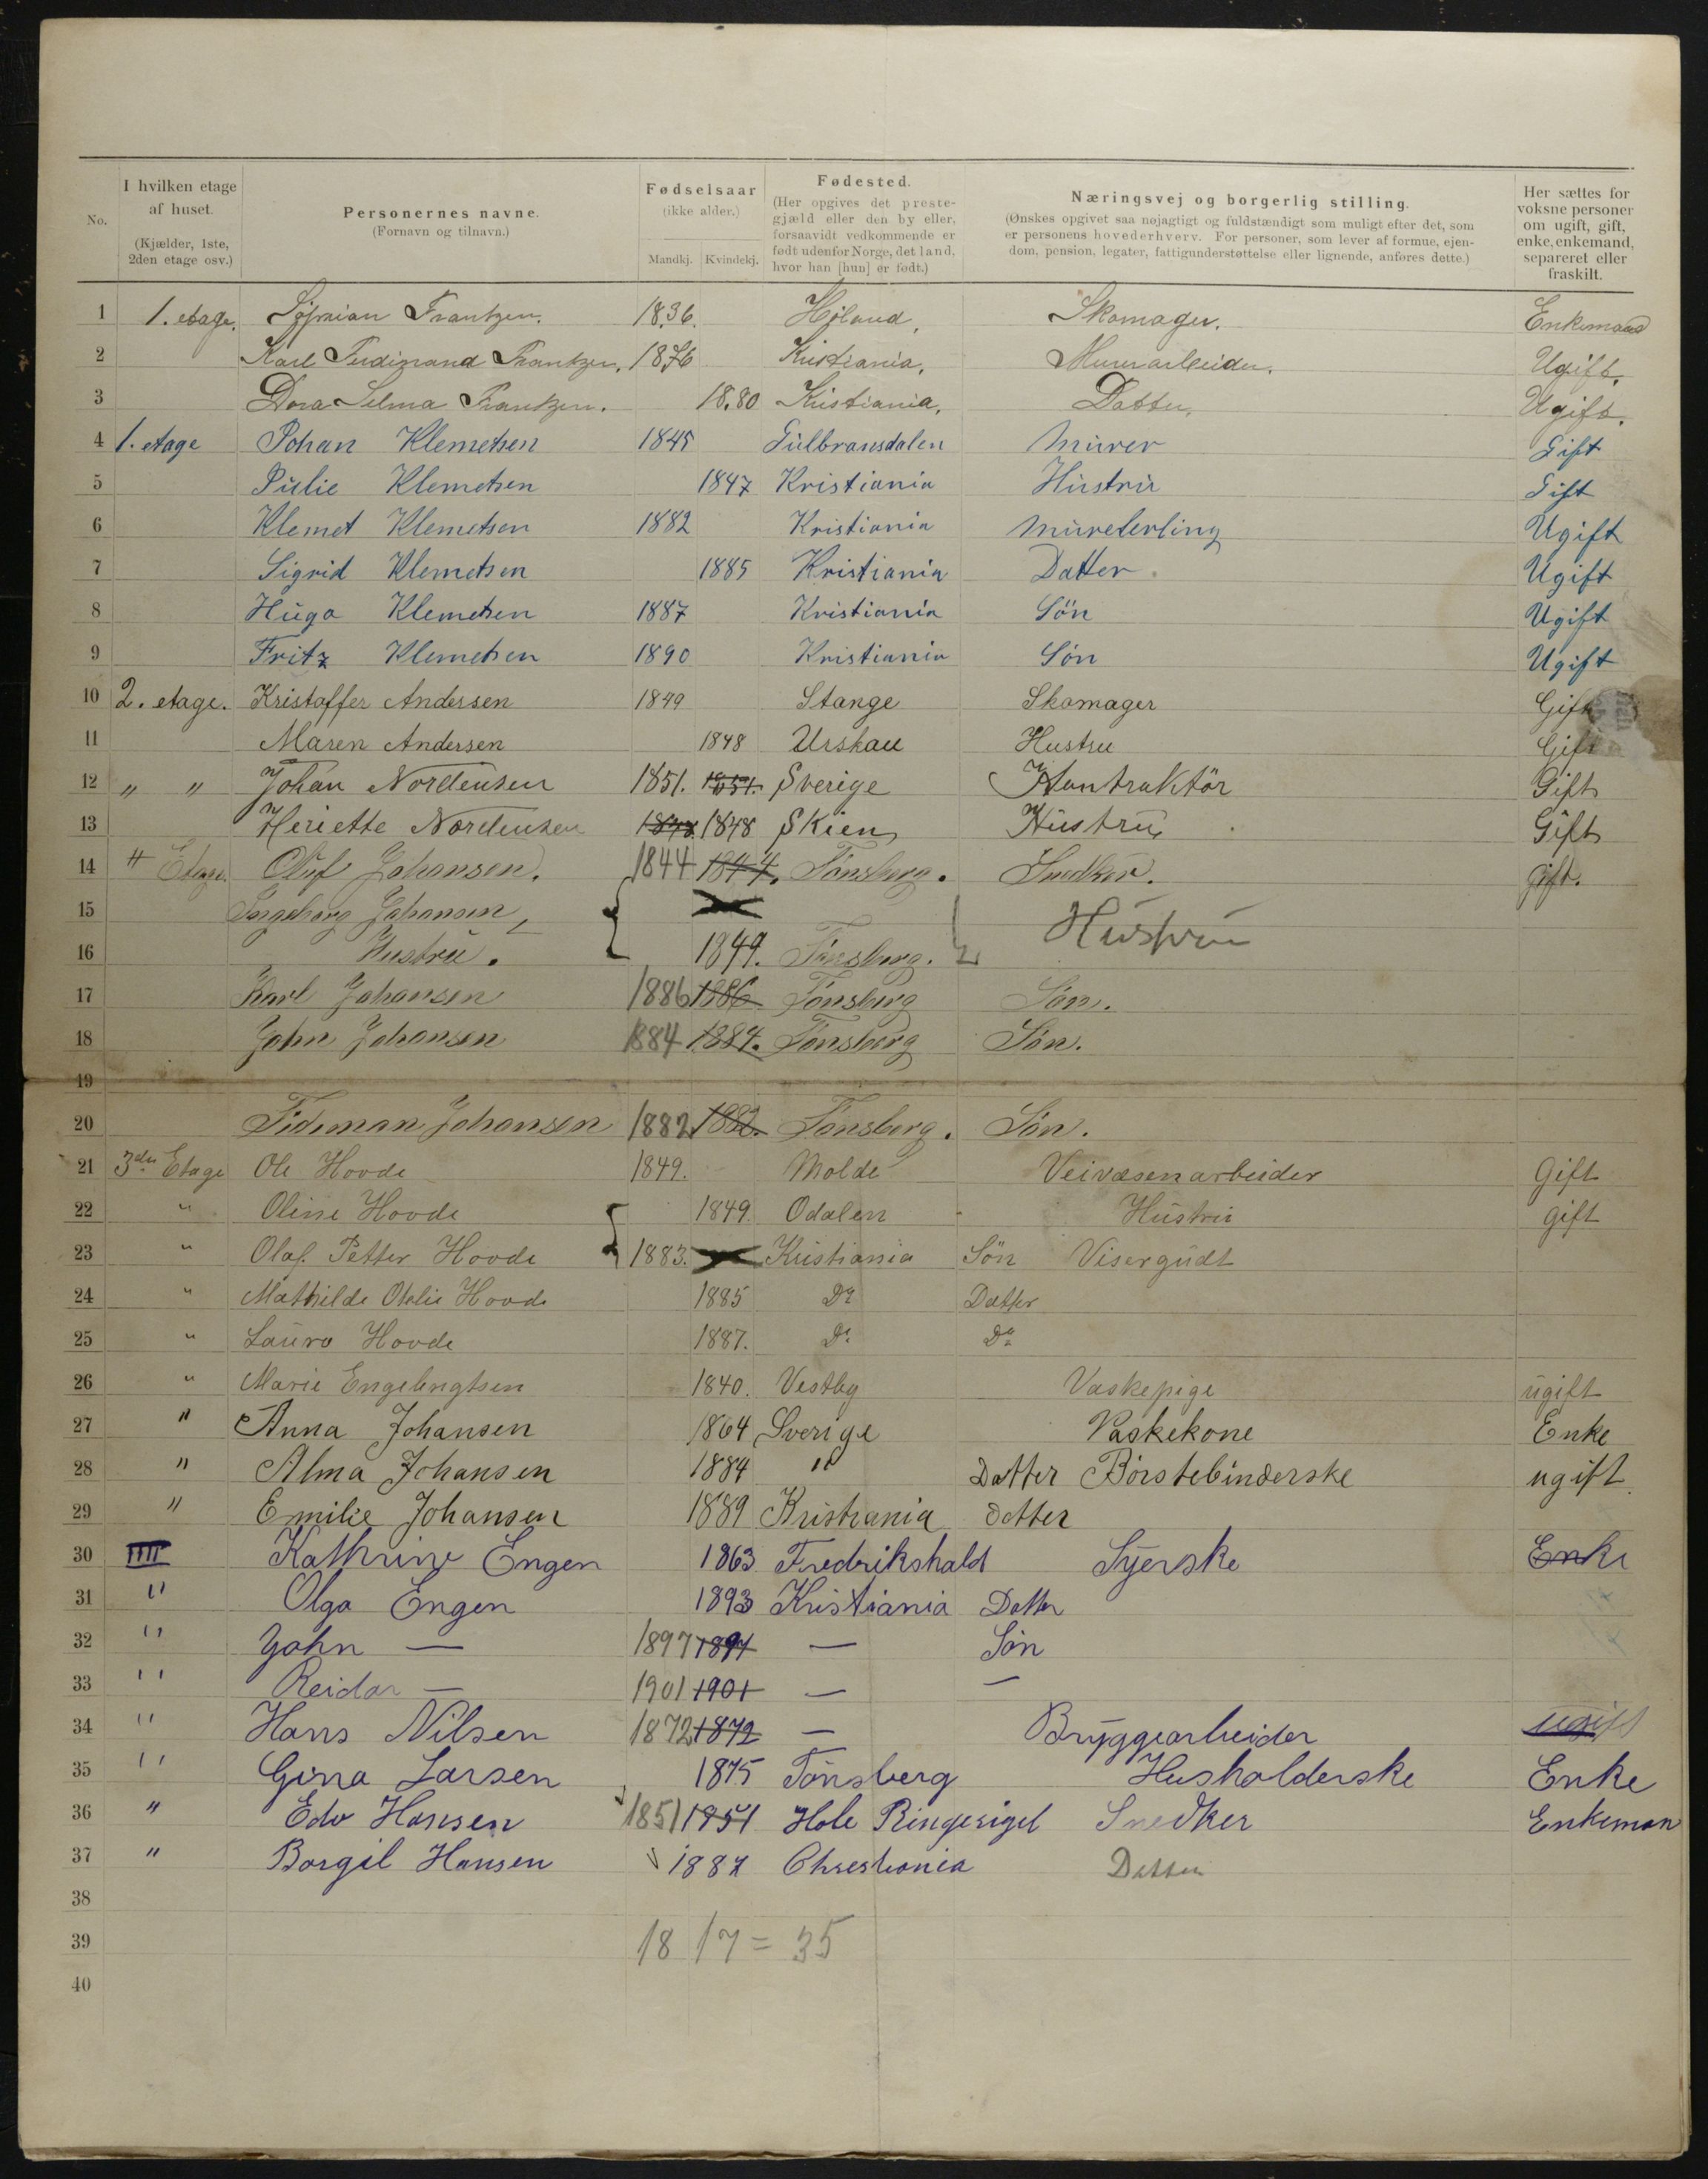 No. | I hvilken etage af huset. (Kjælder, 1ste, 2den etage osv.) | Personernes navne. (Fornavn og tilnavn.) | Fødselsaar (ikke alder.) Mandkj. Kvindekj. | Fødested. (Her opgives det prestegjæld eller den by eller, forsaavidt vedkommende er født udenfor Norge, det land, hvor han [hun] er født.) | Næringsvej og borgerlig stilling. (Ønskes opgivet saa nøjagtigt og fuldstændigt som muligt efter det, som er personens hovederhverv. For personer, som lever af formue, ejendom, pension, legater, fattigunderstøttelse eller lignende, anføres dette.) | Her sættes for voksne personer om ugift, gift, enke, enkemand, separeret eller fraskilt.
1 1. etage. Frantzen. 1836. Høland, Skomager. Enkemand
2 Karl Ferdinand Frantzen. 1876 Kristiania, Murerarbeider. Ugift.
3 Dora Selma Frantzen. 1880 Kristiania, Datter, Ugift.
4 1. etage Johan Klemetsen 1845 Gulbransdalen Murer Gift
5 Julie Klemetsen 1847 Kristiania Hustru Gift
6 Klemet Klemetsen 1882 Kristiania Murelerling Ugift
7 Sigrid Klemetsen 1885 Kristiania Datter Ugift
8 Hugo Klemetsen 1887 Kristiania Sön Ugift
9 Fritz Klemetsen 1890 Kristiania Sön Ugift
10 2. etage. Kristoffer Andersen 1849 Stange Skomager Gift
11 Maren Andersen 1848 Urskau Hustru Gift
12 " " Johan Nordensen 1851. 1851. Sverige Kontraktör Gift
13 Heriette Nordensen 1848 1848 Skien Hustru Gift
14 " Etage. Oluf Johansen. 1844 1844. Tønsberg. Snedker. gift.
15 Ingeborg Johansen,
16 Hustru. 1849. Tønsberg. Hustru
17 Karl Johansen 1886 1886 Tønsberg Søn.
18 John Johansen 1884 1884. Tønsberg Søn.
19
20 Tideman Johansen 1882 1882. Tønsberg. Søn.
21 3die Etage Ole Hovde 1849. Molde Veivæsenarbeider Gift
22 " Oline Hovde 1849. Odalen Hustru gift
23 " Olaf. Petter Hovde 1883. Kristiania Sön Visergudt
24 " Mathilde Otelie Hovde 1885 Do Datter
25 " Laura Hovde 1887. Do Do
26 " Marie Engebrigtsen 1840. Vestby Vaskepige ugift
27 " Anna Johansen 1864 Sverige Vaskekone Enke
28 " Alma Johansen 1884 " Datter Børstebinderske ugift
29 " Emilie Johansen 1889 Kristiania datter
30 IIII Kathrine Engen 1863 Fredrikshald Syerske Enke
31 " Olga Engen 1893 Kristiania Datter
32 " John — 1897 1897 — Søn
33 " Reidar — 1901 1901 — —
34 " Hans Nilsen 1872 1872 — Bryggearbeider ugift
35 " Gina Larsen 1875 Tönsberg Husholderske Enke
36 " Edv Hansen 1851 1851 Hole Ringerigel Snedker Enkeman
37 " Borgil Hansen 1887 Chrestiania Datter
38
39 18 17 = 35
40